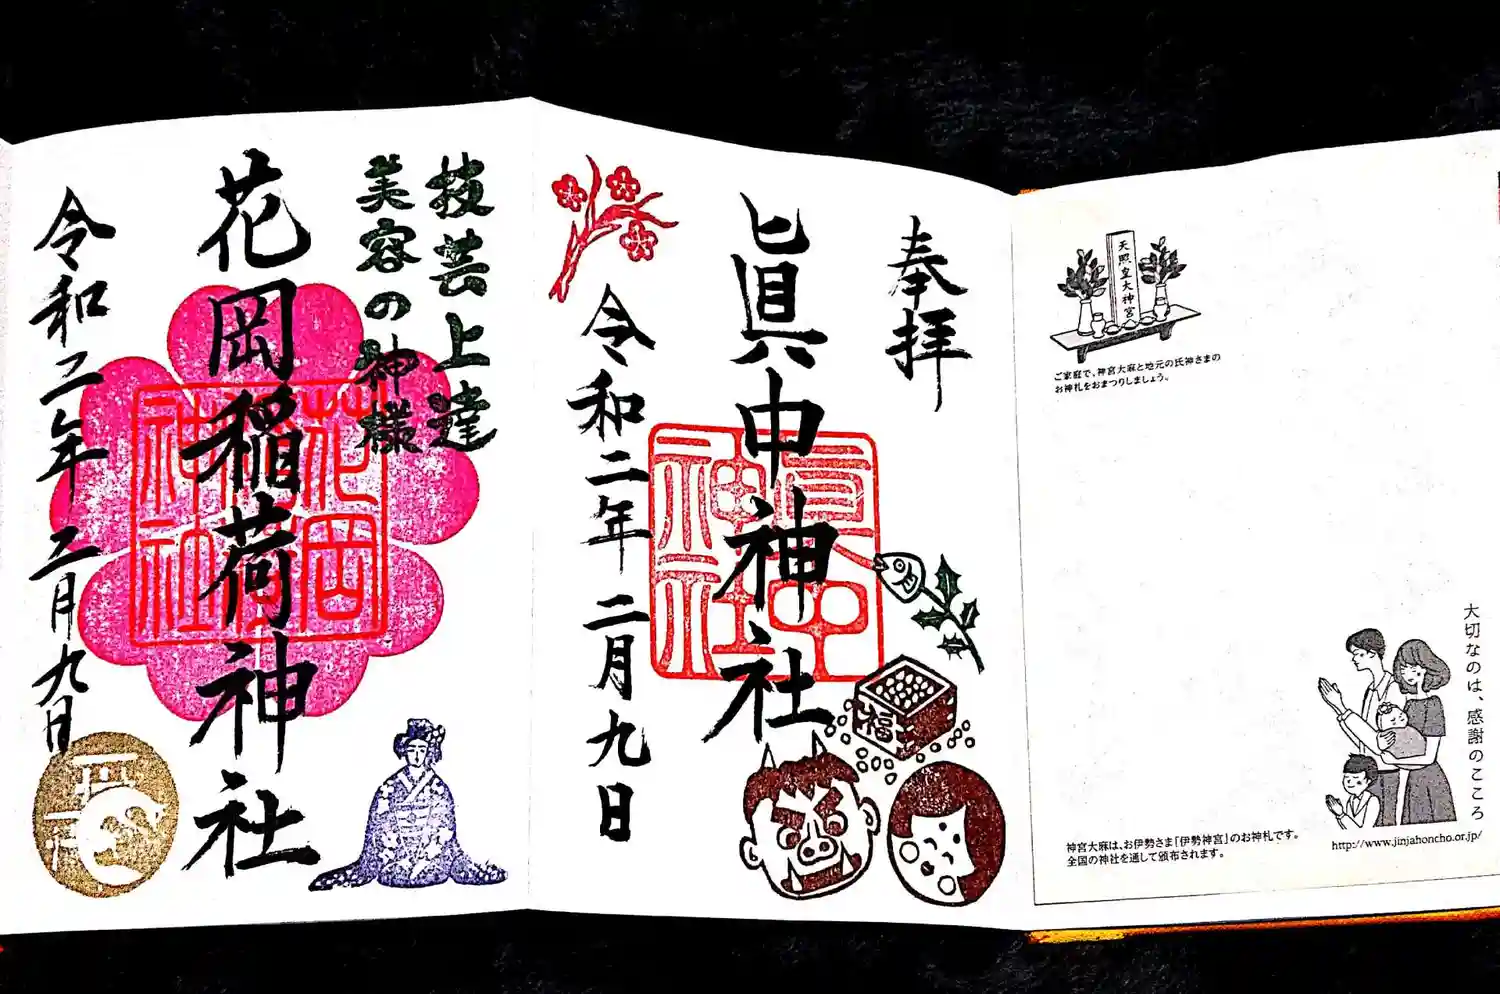 天照皇大神宮
ご家庭で、神宮大麻と地元の氏神さまの
お神札をおまつりしましょう。
大切なのは、感謝のこころ
神宮大麻は、お伊勢さま「伊勢神宮」のお神札です。
全国の神社を通して頒布されます。
http://www.jinjahoncho.or.jp/
奉拝
眞中神社
眞中
神社
福
令和二年二月九日
技芸上達
美容の神様
花岡稲荷神社
花岡
神社
令和二年二月九日